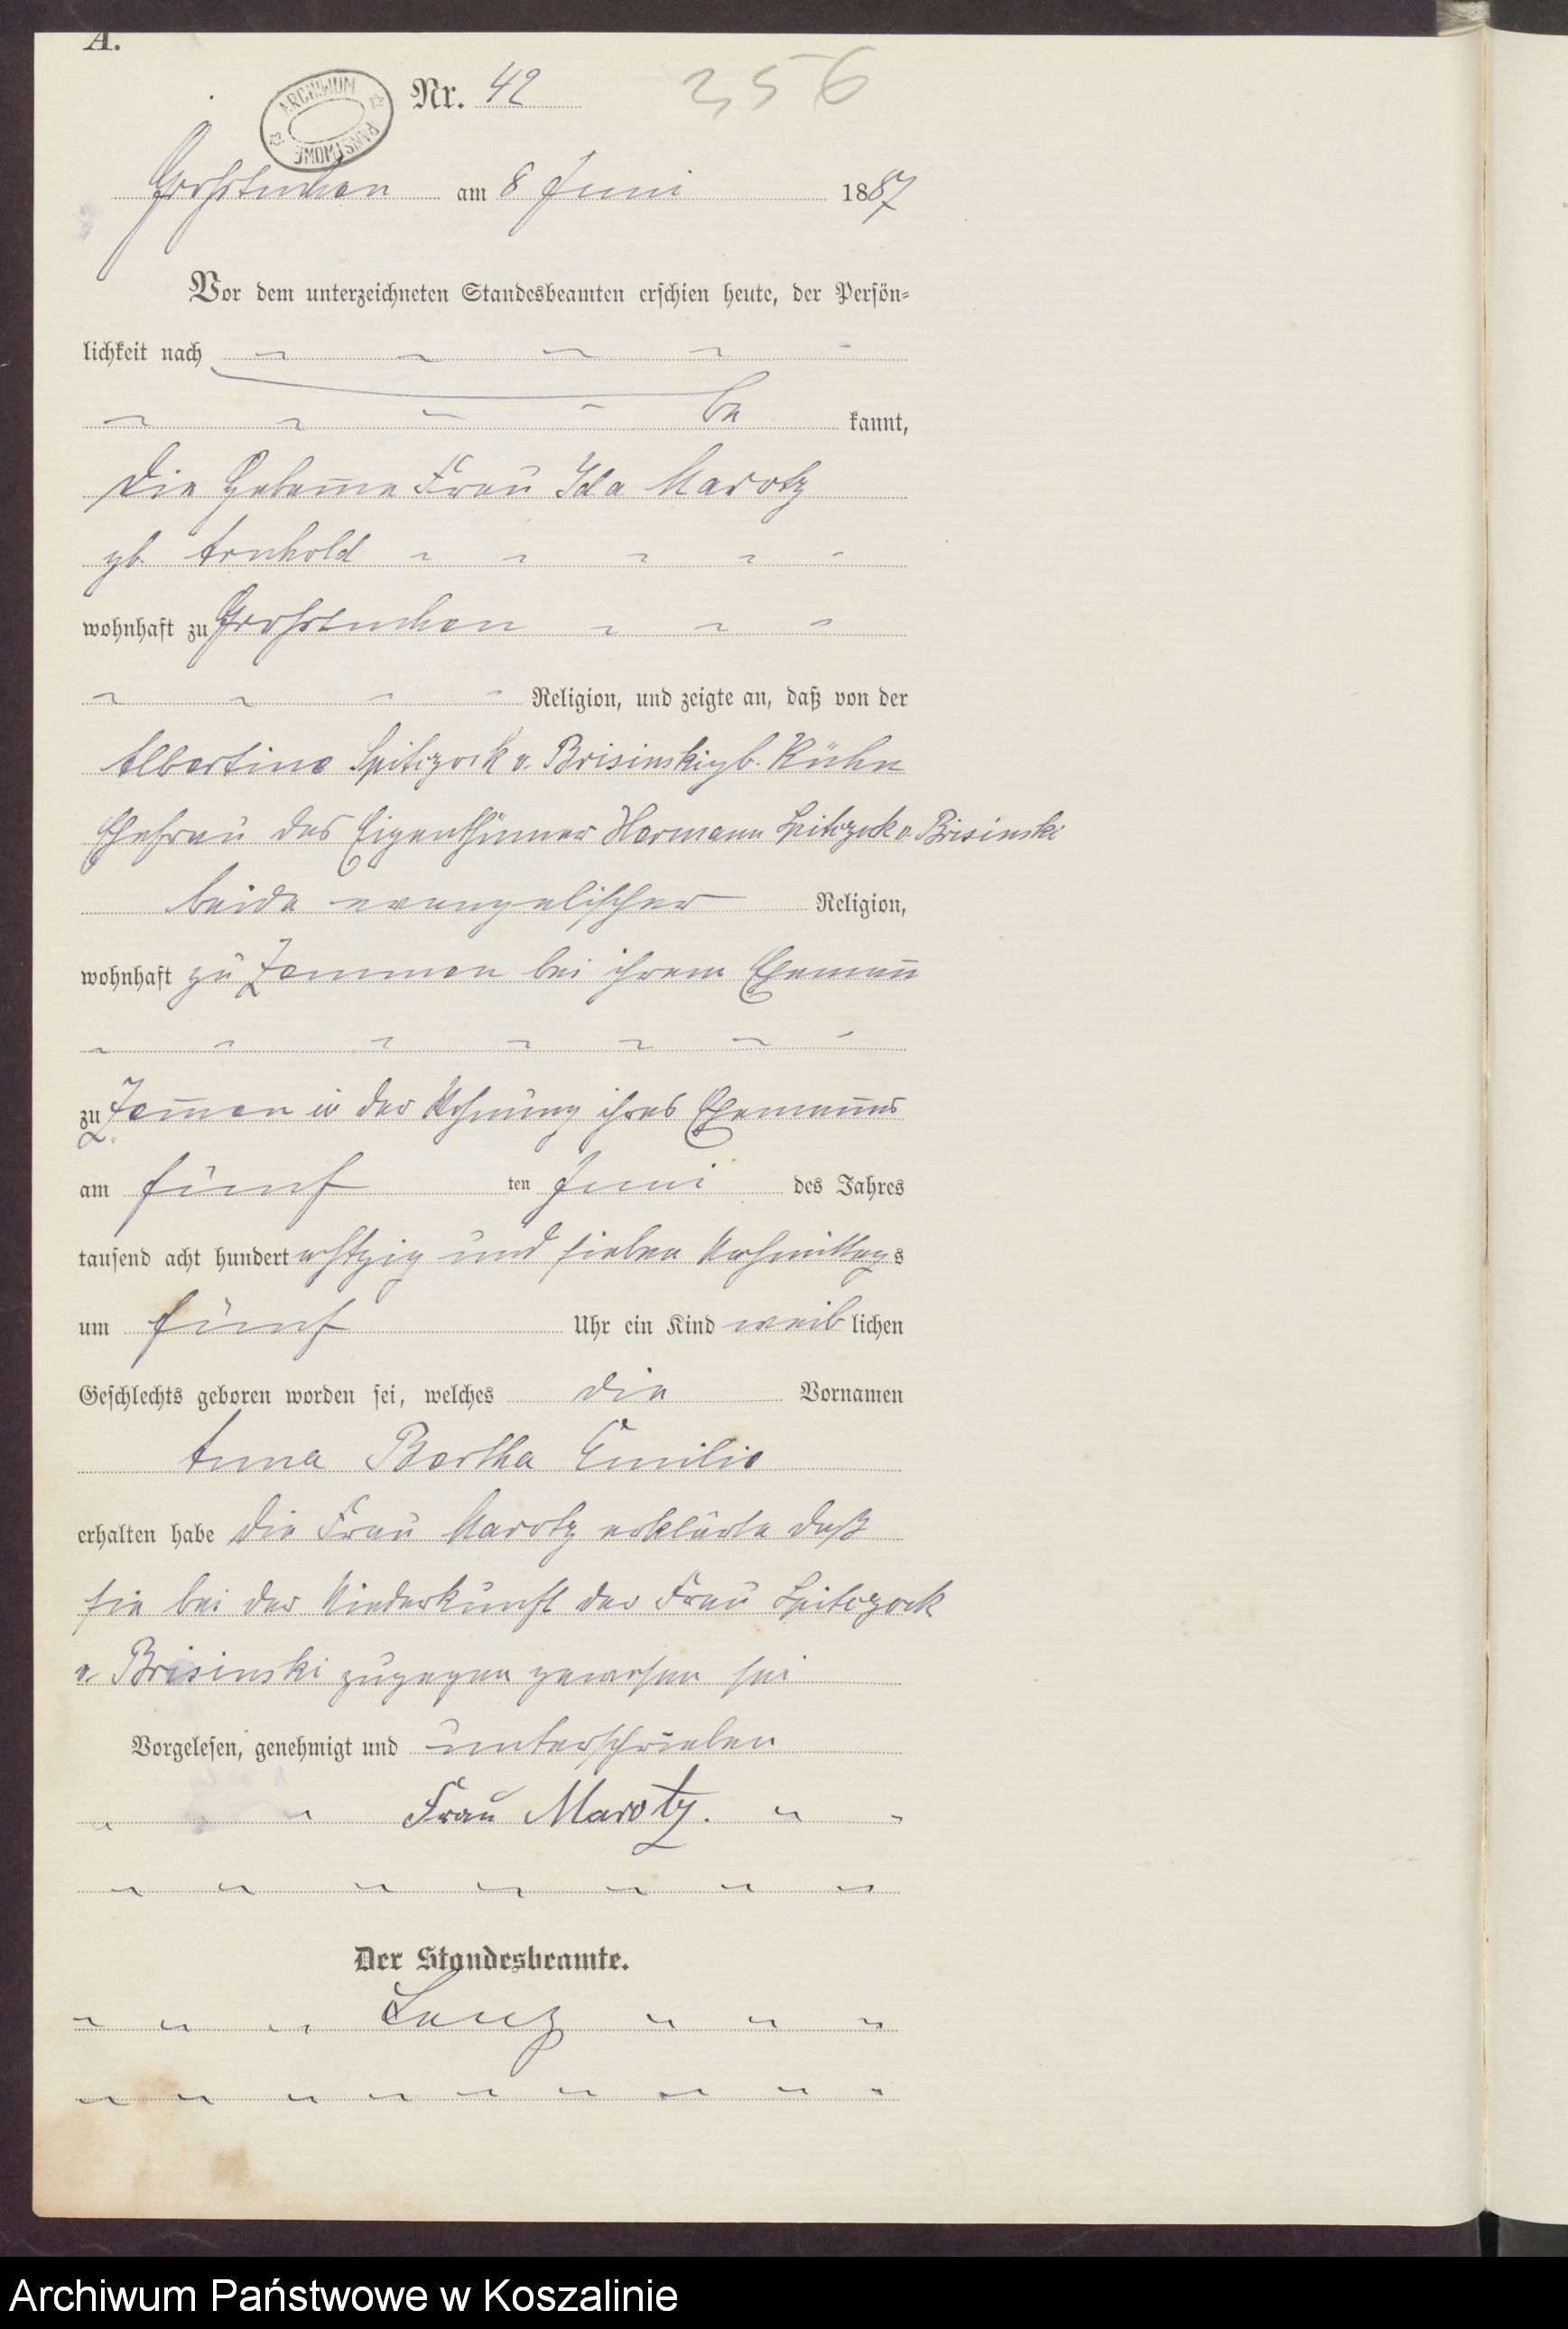 A.
ARCHIWUM PAŃSTWOWE
Nr. 42
256
Großtuchen am 8 Juni 1887
Vor dem unterzeichneten Standesbeamten erschien heute, der Persön=
lichkeit nach
be kannt,
die Hebam̄e Frau Ida Marotz
gb. Arnhold
wohnhaft zu Großtuchen
Religion, und zeigte an, daß von der
Albertine Spitczock v. Brisinski gb. Kühn
Ehefrau des Eigenthümer Hermann Spitczock v. Brisinski
beide evangelischer Religion,
wohnhaft zu Zemmen bei ihrem Eheman̄
zu Zem̄en in der Wohnung ihres Eheman̄es
am fünf ten Juni des Jahres
tausend acht hundert achtzig und sieben Nachmittags
um fünf Uhr ein Kind weib lichen
Geschlechts geboren worden sei, welches die Vornamen
Anna Bertha Emilie
erhalten habe die Frau Marotz erklärte daß
sie bei der Niederkunft der Frau Spitczock
v. Brisinski zugegen gewesen sei
Vorgelesen, genehmigt und unterschrieben
Frau Marotz.
Der Standesbeamte.
Archiwum Państwowe w Koszalinie